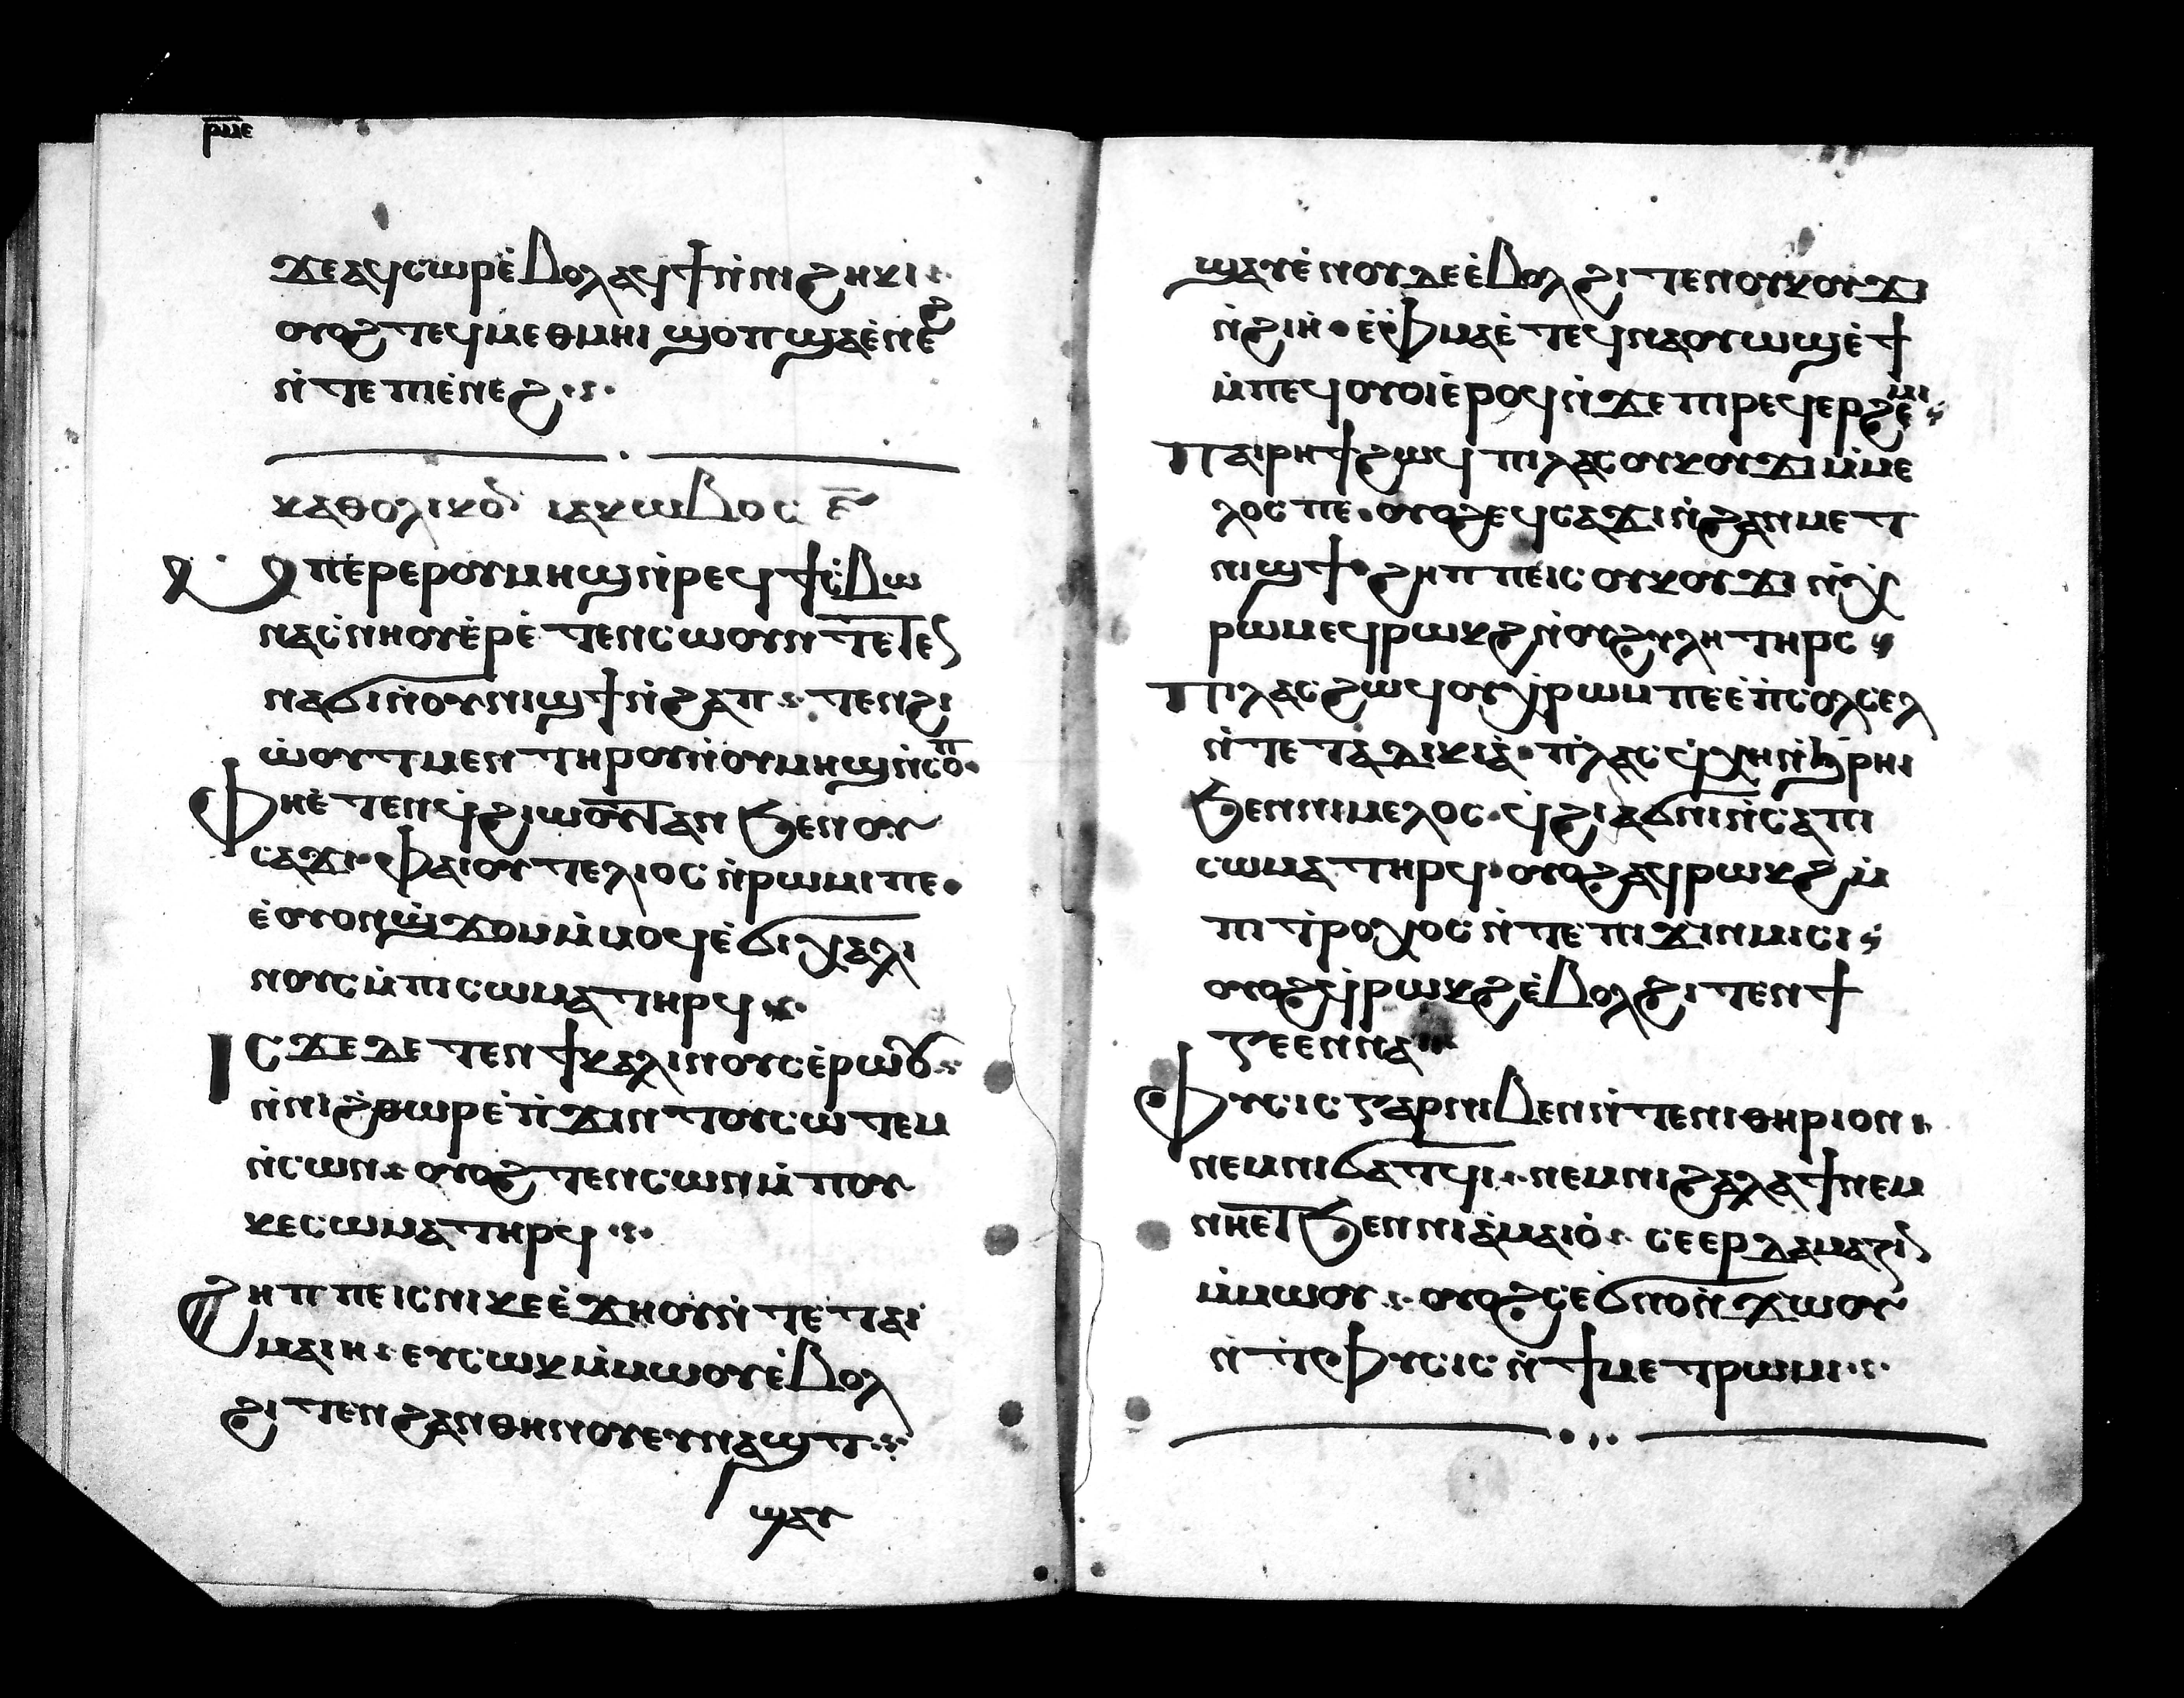 ⲣⲙⲉ
ϫⲉⲁϥⲥⲱⲣⲉ̇ⲃⲟⲗⲁϥϯⲛ̇ⲛⲓϩⲏⲕⲓ
ⲟⲩⲟϩⲧⲉϥⲙⲉⲑⲙⲏⲓϣⲟⲡϣⲁⲉ̇ⲛⲉϩ
ⲛ̇ⲧⲉⲡⲓⲉ̇ⲛⲉϩ
ⲕⲁⲑⲟⲗⲓⲕⲟⲛ ⲓⲁⲕⲱⲃⲟⲥ ⲅ̅
ⲙⲡⲉⲣⲉⲣⲟⲩⲙⲏϣⲛ̇ⲣⲉϥϯⲥ̇ⲃⲱ
ⲛⲁⲥ̇ⲛⲏⲟⲩⲉ̇ⲣⲉ̇ⲧⲉⲛⲥⲱⲟⲩⲛ ⲧⲉⲧⲉⲛ
ⲛⲁϭⲓⲛ̇ⲟⲩⲛⲓϣϯⲛ̇ϩⲁⲡ ⲧⲉⲛϩⲓ
ⲱ̇ⲟⲩⲧⲙⲉⲛ ⲧⲏⲣⲟⲩⲛ̇ⲟⲩⲙⲏϣⲛ̇ⲥⲟⲡ
ⲫⲏⲉ̇ⲧⲉⲛϥ̇ϩⲓⲱⲟⲩⲧⲁⲛ ϧⲉⲛⲟⲩ
ⲥⲁϫⲓ ⲫⲁⲓⲟⲩⲧⲉⲗⲓⲟⲥ ⲛ̇ⲣⲱⲙⲓⲡⲉ
ⲉ̇ⲟⲩⲟⲛϣ̇ϫⲟⲙⲙ̇ⲙⲟϥⲉ̇ϭⲓⲭⲁⲗⲓ
ⲛⲟⲩⲥⲙ̇ⲡⲓⲥⲱⲙⲁⲧⲏⲣϥ
ⲓⲥϫⲉⲇⲉ ⲧⲉⲛϯⲭⲁⲗⲓⲛⲟⲩⲥⲉ̇ⲣⲱⲟⲩ
ⲛ̇ⲛⲓϩ̇ⲑⲱⲣⲉ̇ⲡ̇ϫⲓⲛⲧⲟⲩⲥⲱⲧⲉⲙ
ⲛ̇ⲥⲱⲛ ⲟⲩⲟϩ ⲧⲉⲛⲥⲱⲛⲙ̇ⲡⲟⲩ
ⲕⲉⲥⲱⲙⲁⲧⲏⲣϥ
ϩⲏⲡⲡⲉⲓⲥⲛⲓⲕⲉⲉ̇ϫⲏⲟⲩⲛ̇ⲧⲉⲡⲁⲓ
ⲙⲁⲓⲏ ⲉⲩⲥⲱⲕⲙ̇ⲙⲱⲟⲩⲉ̇ⲃⲟⲗ
ϩⲓⲧⲉⲛϩⲁⲛⲑⲏⲛⲟⲩⲉⲩⲛⲁϣⲧ
ϣⲁⲩ
ϣⲁⲩⲉ̇ⲛⲟⲩⲇⲉⲉ̇ⲃⲟⲗϩⲓⲧⲉⲛⲟⲩⲕⲟⲩϫⲓ
ⲛ̇ϩⲓⲏ ⲉ̇ⲫ̇ⲙⲁⲉ̇ⲧⲉϥⲛⲁⲟⲩⲱϣⲉ̇ϯ
ⲙ̇ⲡⲉϥⲟⲩⲟⲓⲉ̇ⲣⲟϥⲛ̇ϫⲉⲡⲓⲣⲉϥⲉⲣϩⲉⲙⲓ
ⲡⲁⲓⲣⲏϯϩⲱϥ ⲡⲓⲗⲁⲥⲟⲩⲕⲟⲩϫⲓⲙ̇ⲙⲉ
ⲗⲟⲥⲡⲉ ⲟⲩⲟϩⲉϥⲥⲁϫⲓⲛ̇ϩⲁⲛⲙⲉⲧ
ⲛⲓϣϯ ϩⲏⲡⲡⲉⲓⲥ ⲟⲩⲕⲟⲩϫⲓ ⲛ̇ⲭ̇
ⲣⲱⲙⲉϥⲣⲱⲕϩⲛ̇ⲟⲩϩⲩⲗⲏⲧⲏⲣⲥ
ⲡⲓⲗⲁⲥϩⲱϥⲟⲩⲭ̇ⲣⲱⲙⲡⲉⲉ̇ⲡ̇ⲥⲟⲗⲥⲉⲗ
ⲛ̇ⲧⲉⲧⲁⲇⲓⲕⲓⲁ ⲡ̇ⲗⲁⲥ ϥ̇ⲭⲏⲛ̇ϧⲣⲏⲓ
ϧⲉⲛⲛⲓⲙⲉⲗⲟⲥ ϥ̇ϩⲓⲁϭⲛⲓⲛ̇ⲥⲁⲡⲓ
ⲥⲱⲙⲁⲧⲏⲣϥ ⲟⲩⲟϩⲁϥⲣⲱⲕϩⲙ̇
ⲡⲓⲧ̇ⲣⲟⲭⲟⲥ ⲛ̇ⲧⲉⲡⲓϫⲓⲛⲙⲓⲥⲓ
ⲟⲩⲟϩϥ̇ⲣⲱⲕϩⲉ̇ⲃⲟⲗϩⲓⲧⲉⲛϯ
ⲅⲉⲉⲛⲛⲁ
ⲫⲩⲥⲓⲥ ⲅⲁⲣⲛⲓⲃⲉⲛⲛ̇ⲧⲉⲛⲓⲑⲏⲣⲓⲟⲛ
ⲛⲉⲙⲛⲓϭⲁⲧϥⲓ ⲛⲉⲙⲛⲓϩⲁⲗⲁϯⲛⲉⲙ
ⲛⲏⲉⲧϧⲉⲛⲛⲓⲁ̇ⲙⲁⲓⲟⲩ ⲥⲉⲉⲣⲇⲁⲙⲁⲍⲓⲛ
ⲙ̇ⲙⲱⲟⲩ ⲟⲩⲟϩⲥⲉ̇ϭⲛⲟⲛ̇ϫⲱⲟⲩ
ⲛ̇ⲧ̇ⲫⲩⲥⲓⲥ ⲛ̇ϯⲙⲉⲧⲣⲱⲙⲓ